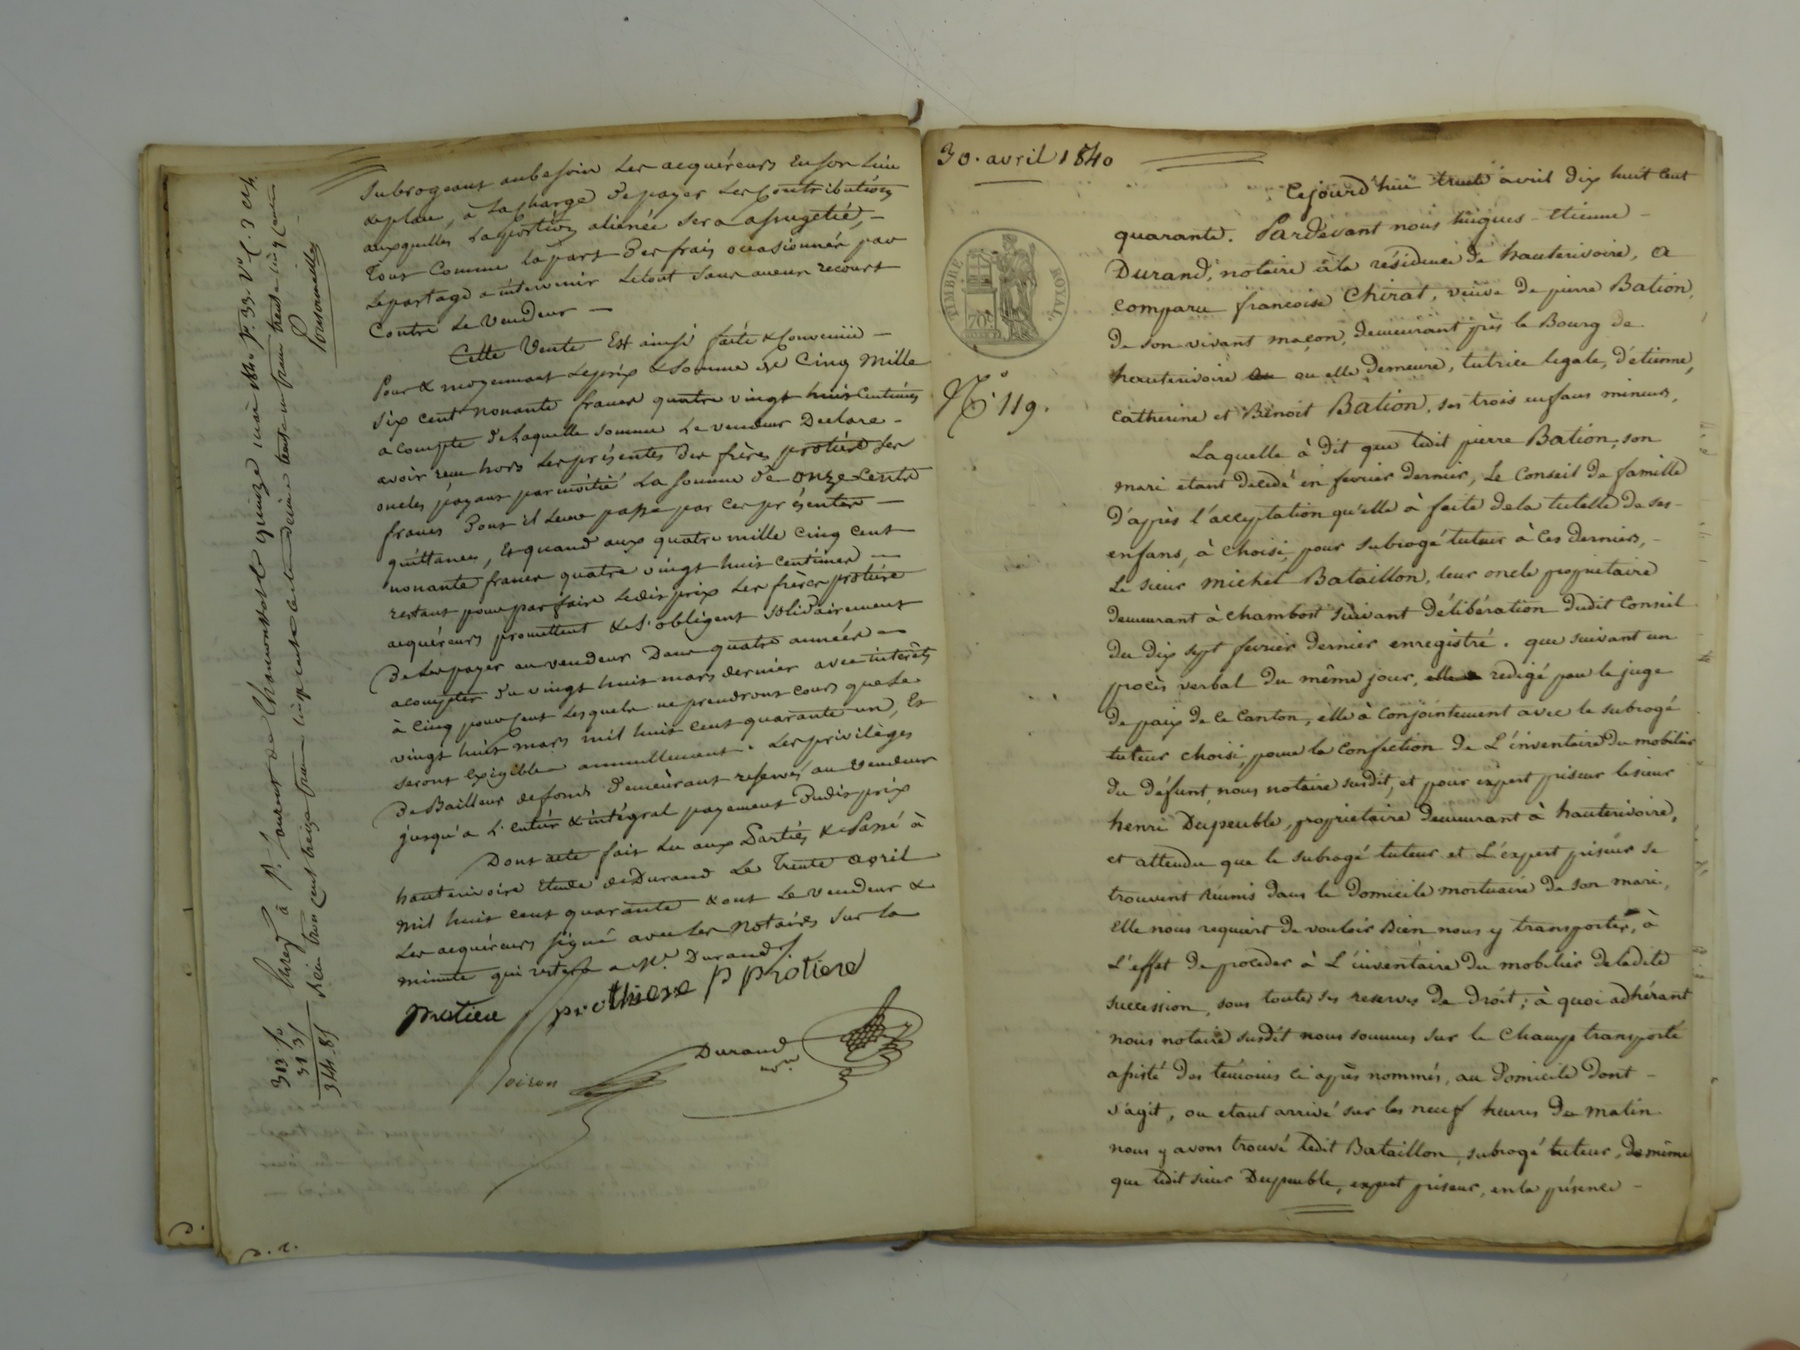 subrogeant au besoin les acquéreurs en son lieu
& place, à la charge de payer les contributions
auxquelles la portion aliénée sera assugetié, –
tout comme la part des frais occasionnés par
le partage a intervenir le tout sans aucun recourt
contre le vendeur —
Cette vente est ainsi faite & convenüe —
pour & moyennant le prix & somme de cinq mille
six cent nonante francs quatre vingt huit centimes
a compte de laquelle somme le vendeur declare –
avoir reçu hors les présentes des frères protière ses
oncles payant par moitié la somme de onze cents
francs dont il leur passe par ces présentes —
quittance, et quand aux quatre mille cinq cent
nonante francs quatre vingt huit centimes —
restant pour parfaire ledit prix les frères protière
acquéreurs promettent & s'obligent solidairement
de les payer au vendeur dans quatre années —
a compter du vingt huit mars dernier avec intérêts
à cinq pour cent lesquels ne prendront cours que le
vingt huit mars mil huit cent quarante un, et
seront exigibles annuellement. Les privilèges
de Bailleur de fonds demeurant reservés au vendeur
jusqu'a l'entier & intégral payement dudit prix
Dont acte fait lu aux parties & passé à
hauterivoire etude de Durand le trente avril
mil huit cent quarante & ont le vendeur &
les acquéreurs signé avec les notaires sur la
minute qui restera a Me. Durand
protiere prothiere p protiere
Durand
nre.
313 50
31 35
344.85
30. avril 1840
TIMBRE ROYAL
70c
No 119.
Cejourd'hui trente avril dix huit cent
quarante. Pardevant nous hugues - etienne -
Durand, notaire à la résidence de hauterivoire, a
comparu francoise Chirat, veuve de pierre Bation,
de son vivant maçon, demeurant près le Bourg de
hauterivoire ou elle demeure, tutrice legale, d'étienne,
catherine et Benoit Bation, ses trois enfans mineurs,
Laquelle à dit que ledit pierre Bation, son
mari etant décedé en fevrier dernier, le conseil de famille
d'après l'acceptation qu'elle à faite de la tutelle de ses -
enfans, à choisi, pour subrogé tuteur à ces derniers, –
le sieur michel Bataillon, leur oncle propriétaire
demeurant à chambost suivant délibération dudit conseil
du dix sept fevrier dernier enregistré. que suivant un
procès verbal du même jour, redigé par le juge
de paix de ce canton, elle à conjointement avec le subrogé
tuteur choisi, pour la confection de L'inventaire du mobilier
du défunt, nous notaire susdit, et pour expert priseur le sieur
henri Dupeuble, propriétaire demeurant à hauterivoire,
et attendu que le subrogé tuteur et L'expert priseur se
trouvent réunis dans le domicile mortuaire de son mari,
elle nous requiert de vouloir bien nous y transporter, à
L'effet de proceder à L'inventaire du mobilier de ladite
succession, sous toutes ses reserves de droit; à quoi adhérant
nous notaire susdit nous sommes sur le champ transporté
assisté des témoins ci après nommés, au domicile dont -
s'agit, ou etant arrivé sur les neuf heures du matin
nous y avons trouvé ledit Bataillon, subrogé tuteur, de même
que ledit sieur Dupeuble, expert priseur, en la présence -